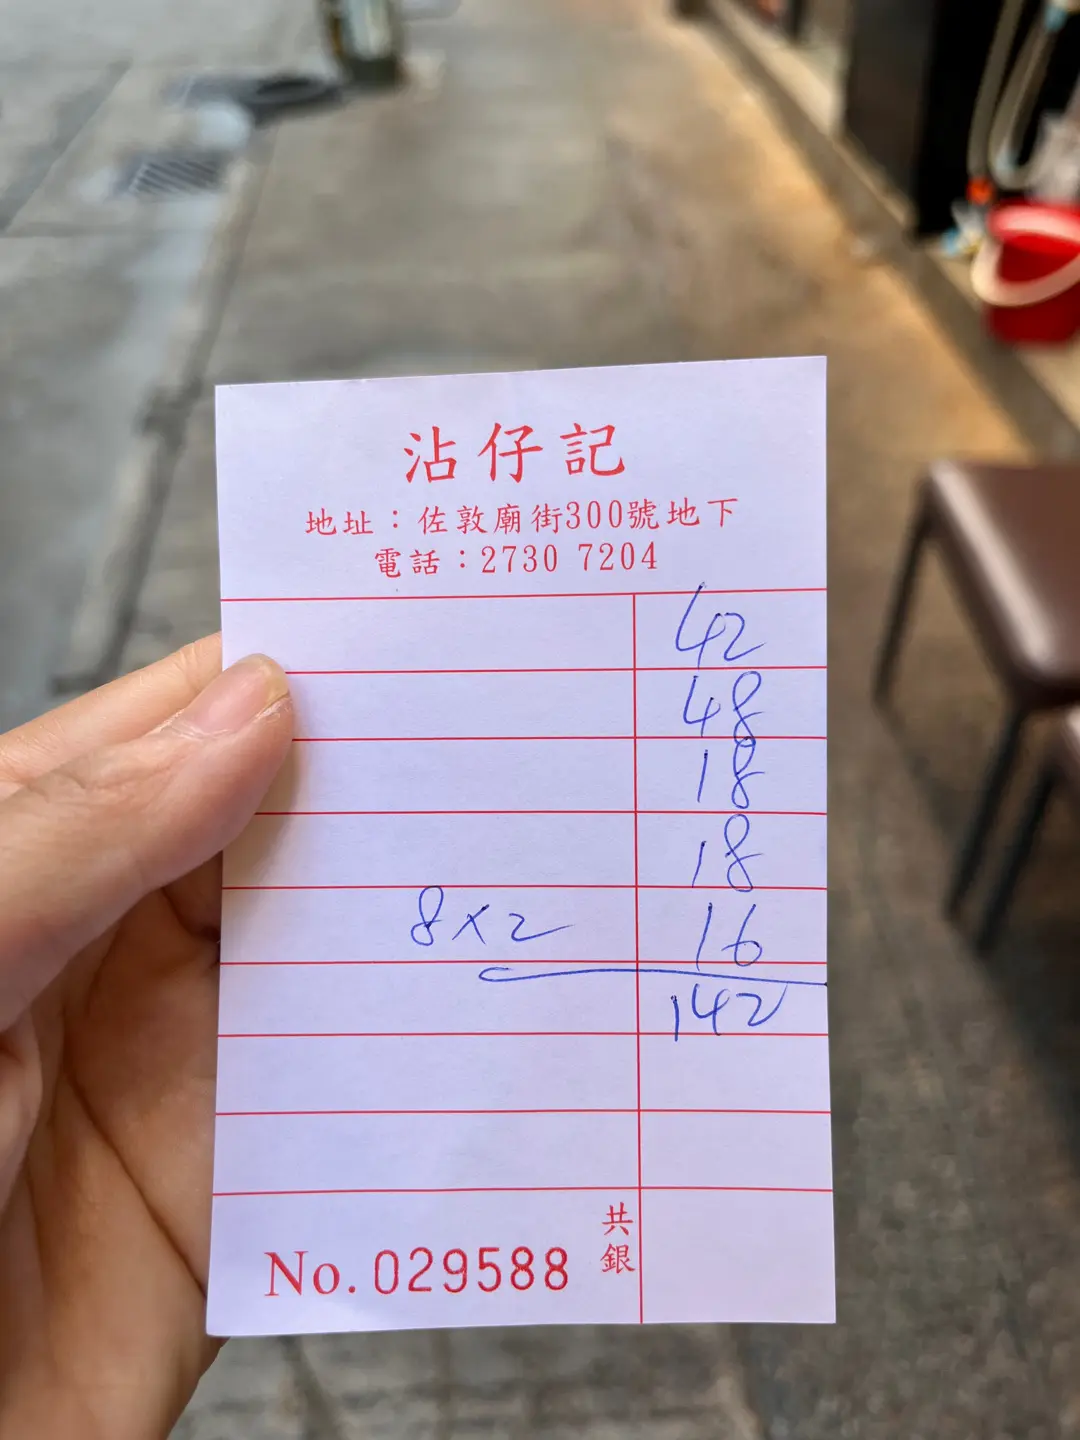 沾仔記
地址：佐敦廟街300號地下
電話：2730 7204
42
48
18
18
8×2 16
142
共銀
No. 029588